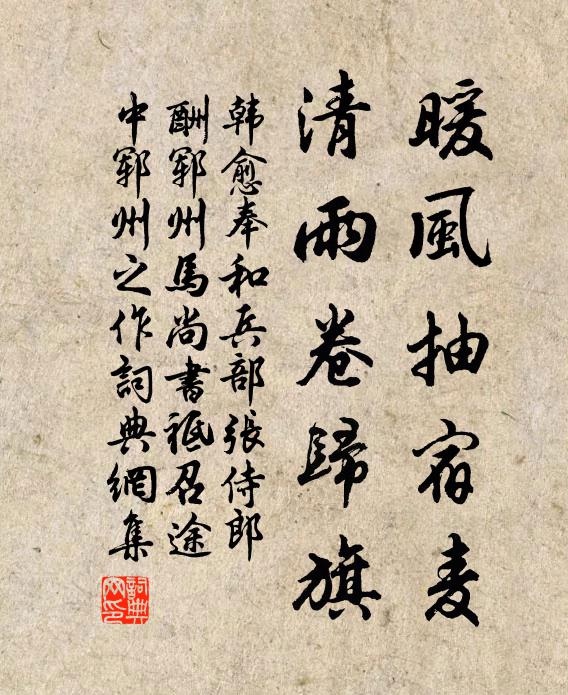 暖風抽宿麦
清雨卷歸旗
韩愈奉和兵部張侍郎
酬鄆州馬尚書祗召途
中鄆州之作詞典網集
詞典网印